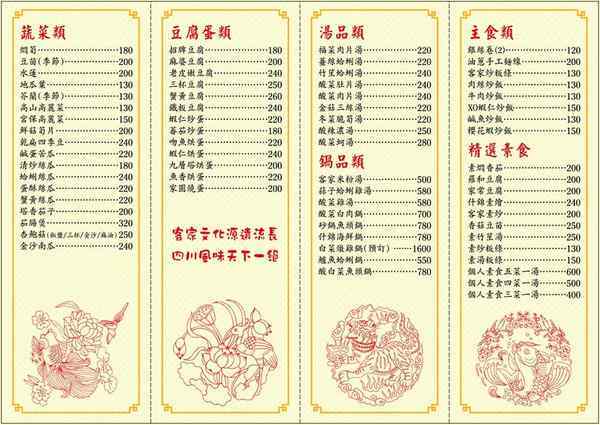 蔬菜類
燜筍 180
豆苗(季節) 200
水蓮 200
地瓜葉 130
芥蘭(季節) 130
高山高麗菜 130
宮保高麗菜 150
鮮菇筍片 200
乾扁四季豆 240
鹹蛋苦瓜 220
清炒絲瓜 180
蛤蜊絲瓜 240
蛋酥絲瓜 220
蟹黃絲瓜 220
塔香茄子 200
茄腸煲 320
杏鮑菇(椒鹽/三杯/金沙/麻油) 250
金沙南瓜 240
豆腐蛋類
招牌豆腐 180
麻婆豆腐 200
老皮嫩豆腐 240
三杯豆腐 250
蟹黃豆腐 260
鐵板豆腐 240
蝦仁炒蛋 240
蕃茄炒蛋 180
吻魚烘蛋 220
蝦仁烘蛋 240
九層塔烘蛋 200
魚香烘蛋 220
家園燒蛋 200
客家文化源遠流長
四川風味天下一絕
湯品類
福菜肉片湯 220
薑絲蛤蜊湯 220
竹笙蛤蜊湯 240
酸菜肚片湯 240
酸菜肉片湯 240
金菇三絲湯 220
冬菜脆筍湯 220
酸辣濃湯 280
酸菜蚵湯 280
鍋品類
客家米粉湯 500
蒜子蛤蜊雞湯 580
酸菜雞湯 580
酸菜白肉鍋 700
砂鍋魚頭鍋 780
什錦海鮮鍋 780
白菜燉雞鍋(預訂) 1600
鱸魚蛤蜊鍋 550
酸白菜魚頭鍋 780
主食類
銀絲卷(2) 120
油蔥手工麵線 200
客家炒粄條 130
肉絲炒飯 130
牛肉炒飯 130
XO蝦仁炒飯 150
鹹魚炒飯 130
櫻花蝦炒飯 150
精選素食
素燜香茄 200
羅和豆腐 200
家常豆腐 200
什錦素燴 240
客家素炒 240
香菇豆苗 250
素竹笙湯 250
素炒粄條 130
素湯粄條 150
個人素食五菜一湯 600
個人素食四菜一湯 500
個人素食三菜一湯 400